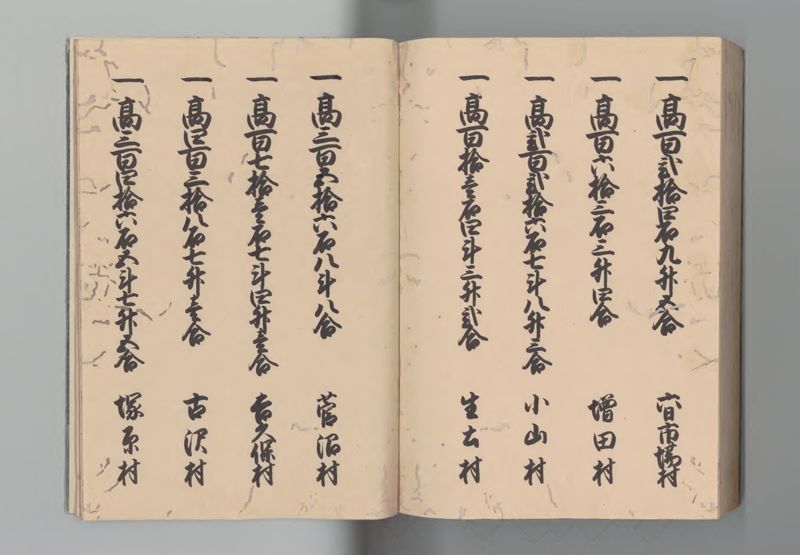 一 高百弐拾四石九升五合 六日市場村
一 高百六拾三石三升四合 増田村
一 高弐百弐拾六石七斗八升三合 小山村
一 高百拾壱石四斗三升弐合 生土村
一 高三百五拾六石八斗八合 菅沼村
一 高百七拾壱石七斗四升壱合 吉久保村
一 高四百三拾八石七升壱合 古沢村
一 高三百四拾六石五斗七升五合 塚原村